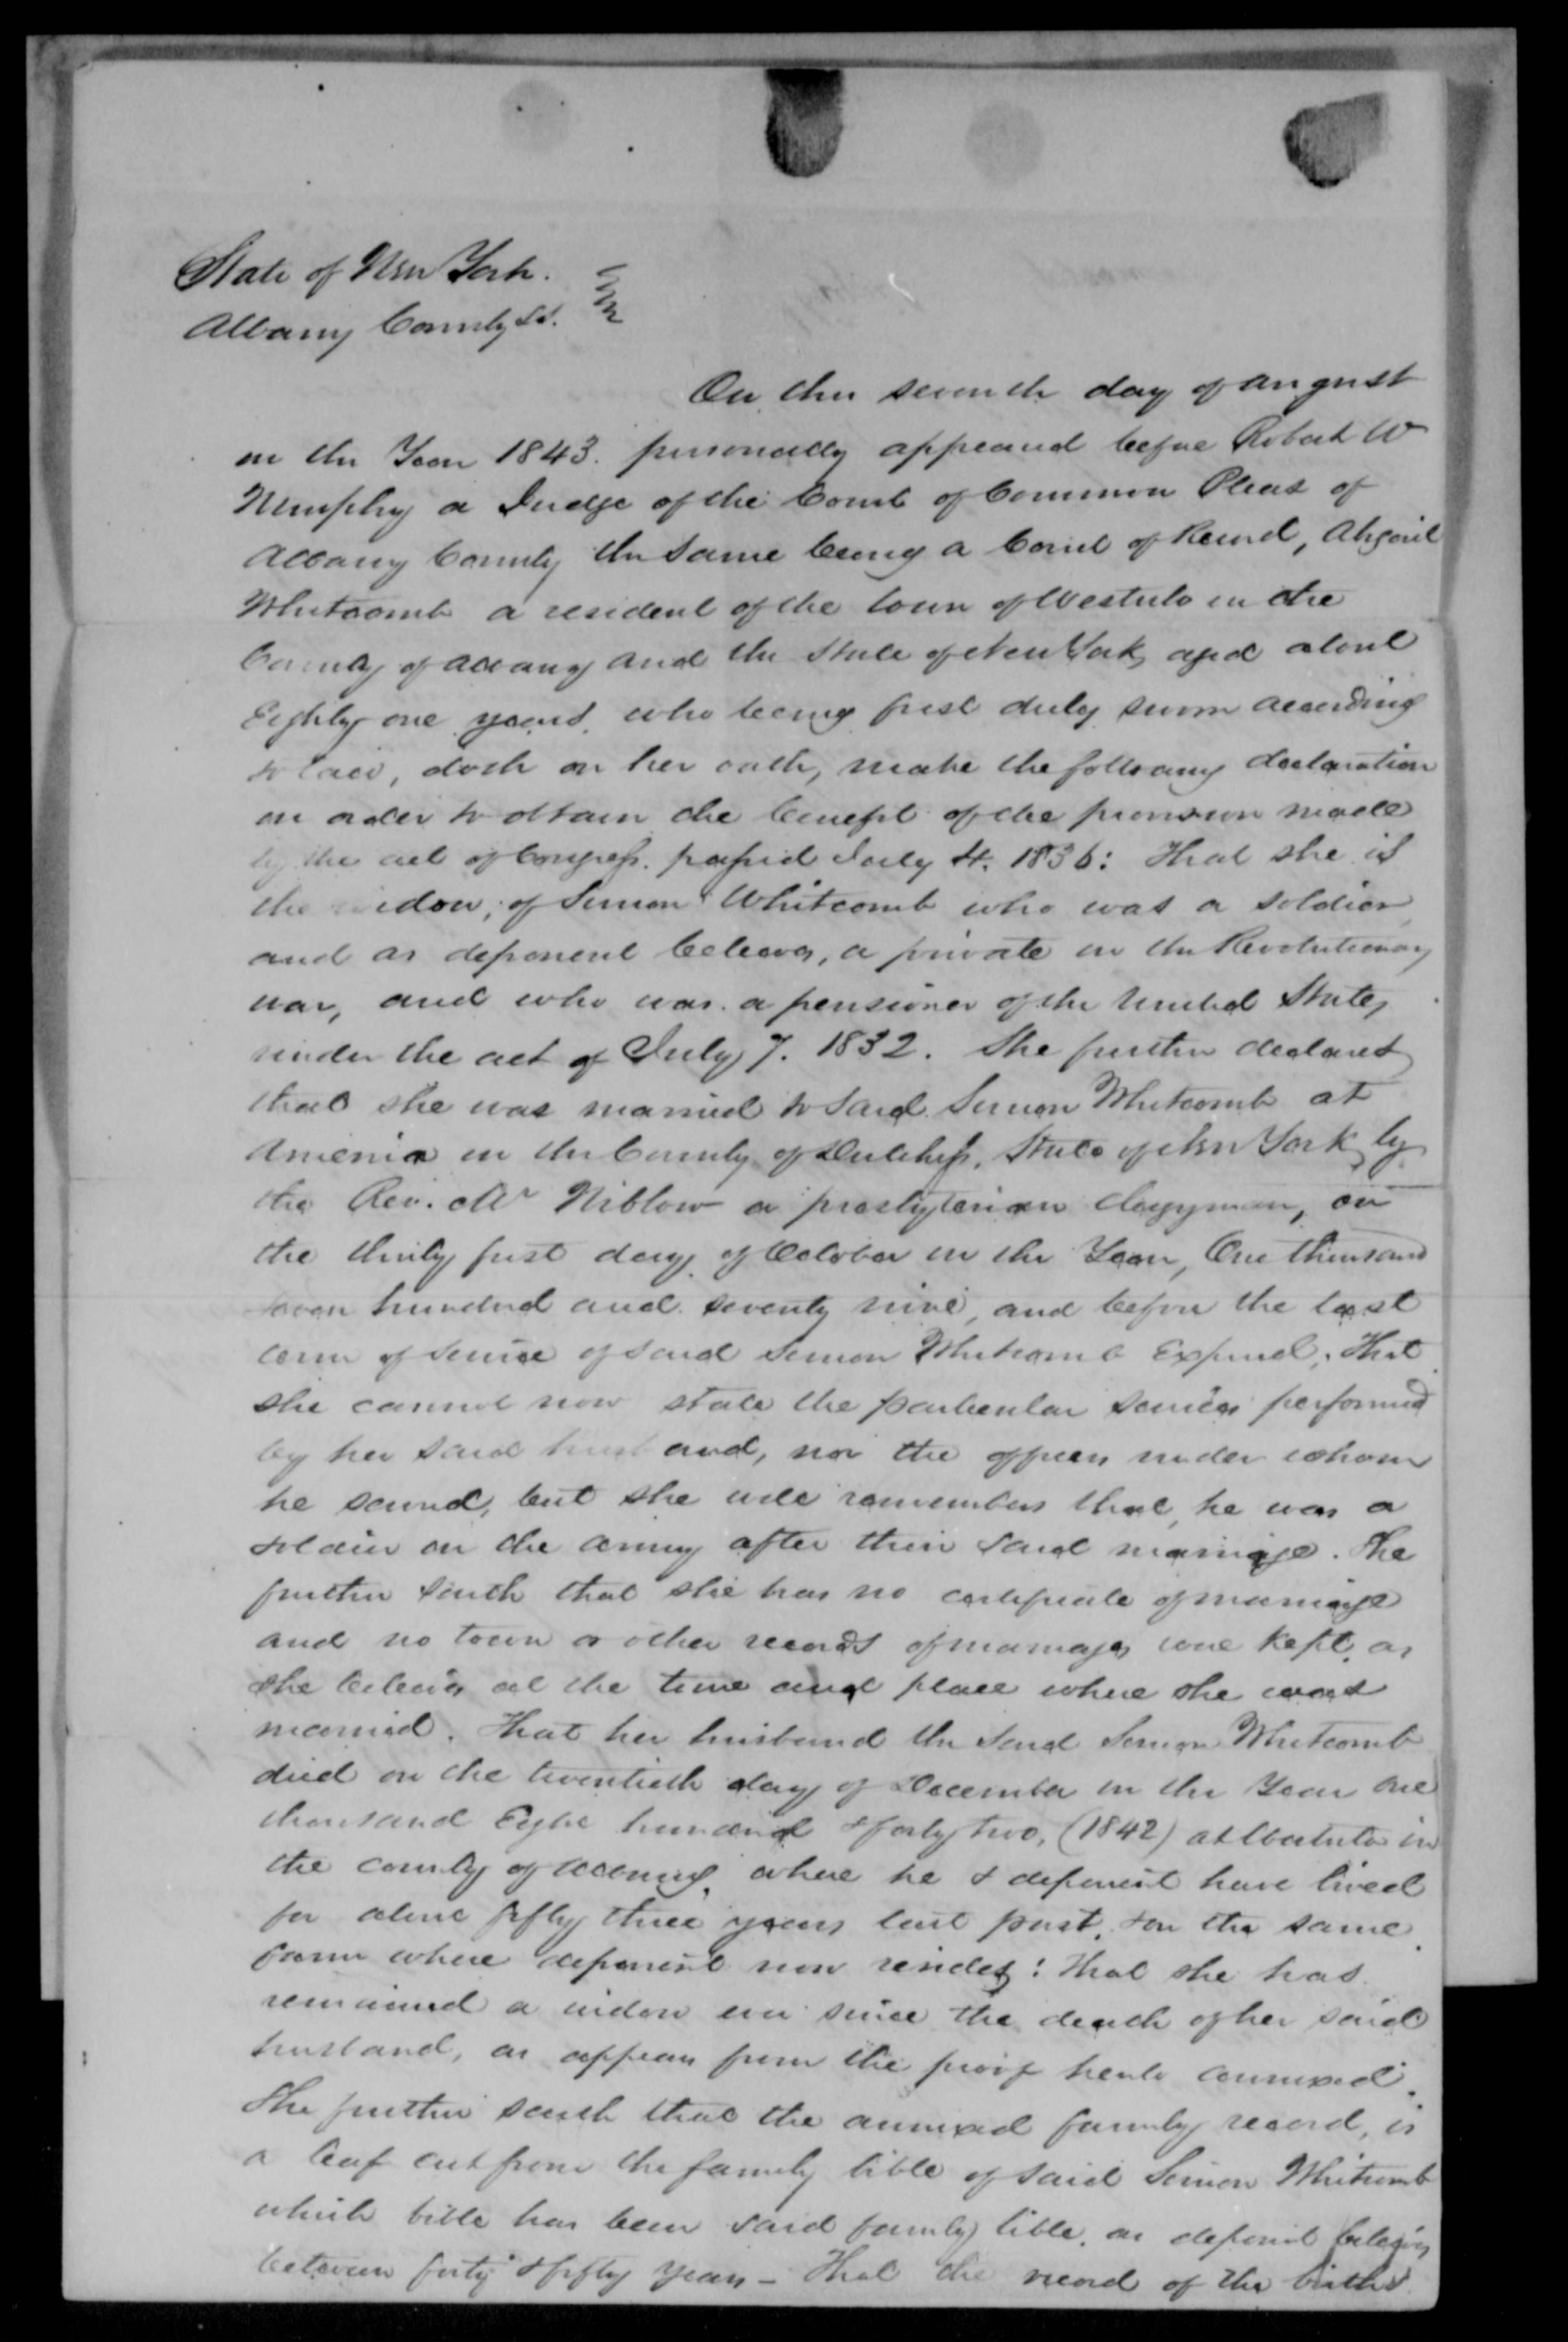 State of New York.
Albany County ss.
On this seventh day of august
in the Year 1843. personally appeared before Robert W
Murphy a Judge of the Court of Common Pleas of
Albany County the same being a Court of Record, Abigail
Whitcomb a resident of the town of Westerlo in the
County of Albany and the State of New York, aged about
Eighty one years, who being first duly sworn according
to law, doth on her oath, make the following declaration
in order to obtain the benefit of the provision made
by the act of Congress. passed July 4. 1836: That she is
the widow, of Simon Whitcomb who was a soldier
and as deponent believes, a private in the Revolutionary
war, and who was a pensioner of the United States
under the act of July 7. 1832. She further declares
that she was married to said Simon Whitcomb at
Amenia in the County of Dutchess, State of New York by
the Rev. Mr Niblow a presbyterian clergyman, on
the thirty first day of October in the Year, One thousand
seven hundred and seventy nine, and before the last
term of service of said Simon Whitcomb Expired; That
she cannot now state the particular services performed
by her said husband, nor the officers under whom
he served, but she well remembers that, he was a
soldier in the army after their said marriage. She
further saith that she has no certificate of marriage
and no town or other records of marriages were kept, as
she believes at the time and place where she was
married. That her husband the said Simon Whitcomb
died on the twentieth day of December in the Year one
thousand Eight hundred & forty two, (1842) at Westerlo in
the county of Albany, where he & deponent have lived
for about fifty three years last past, & on the same
farm where deponent now resides: That she has
remained a widow ever since the death of her said
husband, as appears from the proof hereto annexed.
She further saith that the annexed family record, is
a leaf cut from the family bible of said Simon Whitcomb
which bible has been said family bible, as deponent believes
between forty & fifty years - That the record of the births